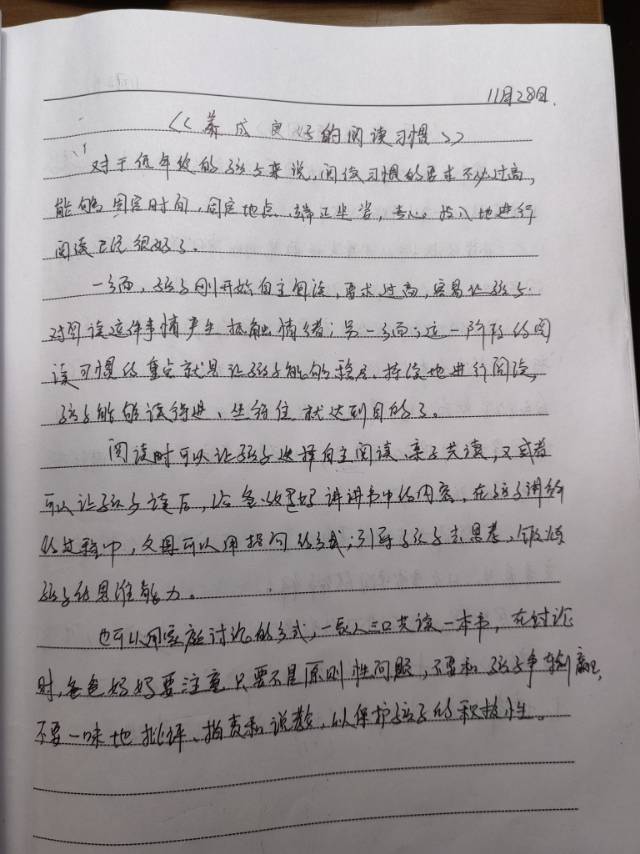 11月28日.
《养成良好的阅读习惯》
对于低年级的孩子来说,阅读习惯的要求不必过高,
能够固定时间,固定地点、端正坐姿,专心投入地进行
阅读已经很好了。
一方面,孩子刚开始自主阅读,要求过高,容易让孩子
对阅读这件事情产生抵触情绪;另一方面,这一阶段的阅
读习惯的重点就是让孩子能够稳定、持续地进行阅读,
孩子能够读得进、坐得住就达到目的了。
阅读时可以让孩子选择自主阅读、亲子共读,又或者
可以让孩子读后,给爸妈讲讲书中的内容,在孩子讲解
的过程中,父母可以用提问的方式,引导孩子去思考,锻炼
孩子的思维能力。
也可以用家庭讨论的方式,一家人三口共读一本书,在讨论
时,爸爸妈妈要注意只要不是原则性问题,不要和孩子争输赢,
不要一味地批评、指责和说教,以保护孩子的积极性。